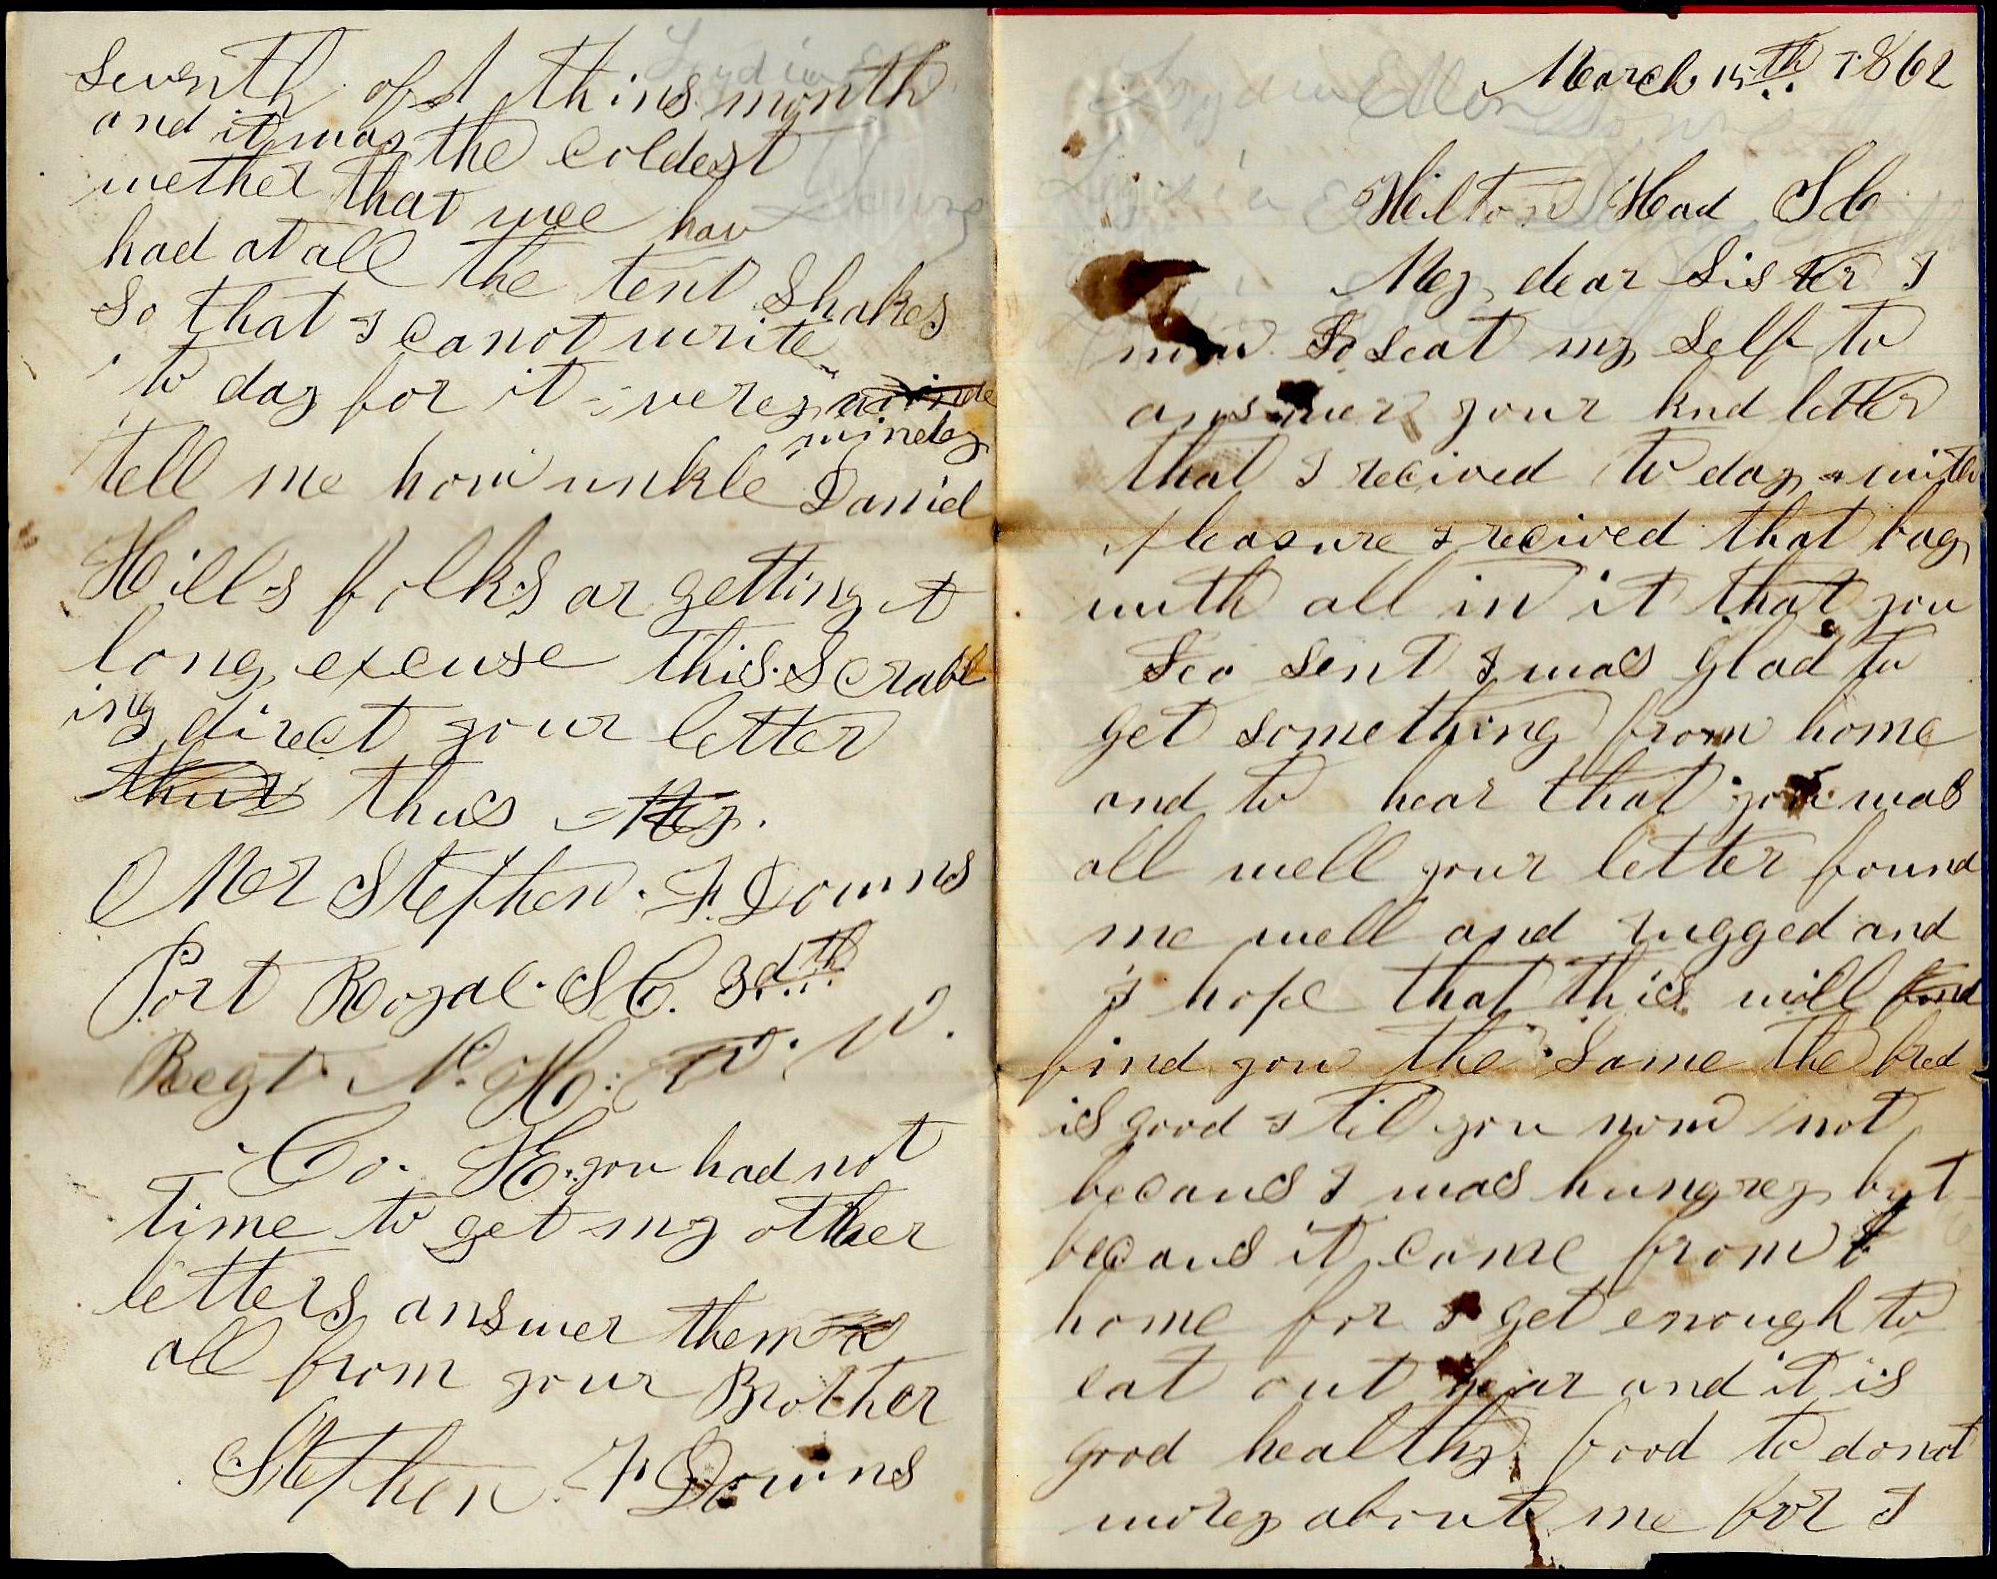 March 15th 1862
Hilton Head S C
My dear Sister I
now So Seat my Self to
answer your knd letter
that I recived to day with
pleasure I recived that bag
with all in it that you
Sent I was glad to
get something from home
and to hear that you was
all well your letter found
me well and rugged and
I hope that this will find
find you the Same the bred
is good you now not
becaus I was hungrey but
becaus it come from
home for I get enough to
eat out hear and it is
good healthy food to donot
worey about me for I
Seventh of this month
and it was the coldest
wether that wee hav
had at all the tent Shakes
So that I canot write
to day for it verey
windey
tell me how unkle Daniel
Hills folks ar getting
long excuse this Scrabl
ing direct your letter
thus
Mr Stephen. F. Downs
Port Royal. S C. 3dth
Regt N. H. V.
Co. H. you had not
time to get my other
letters answer them
all from your Brother
Stephen F Downs